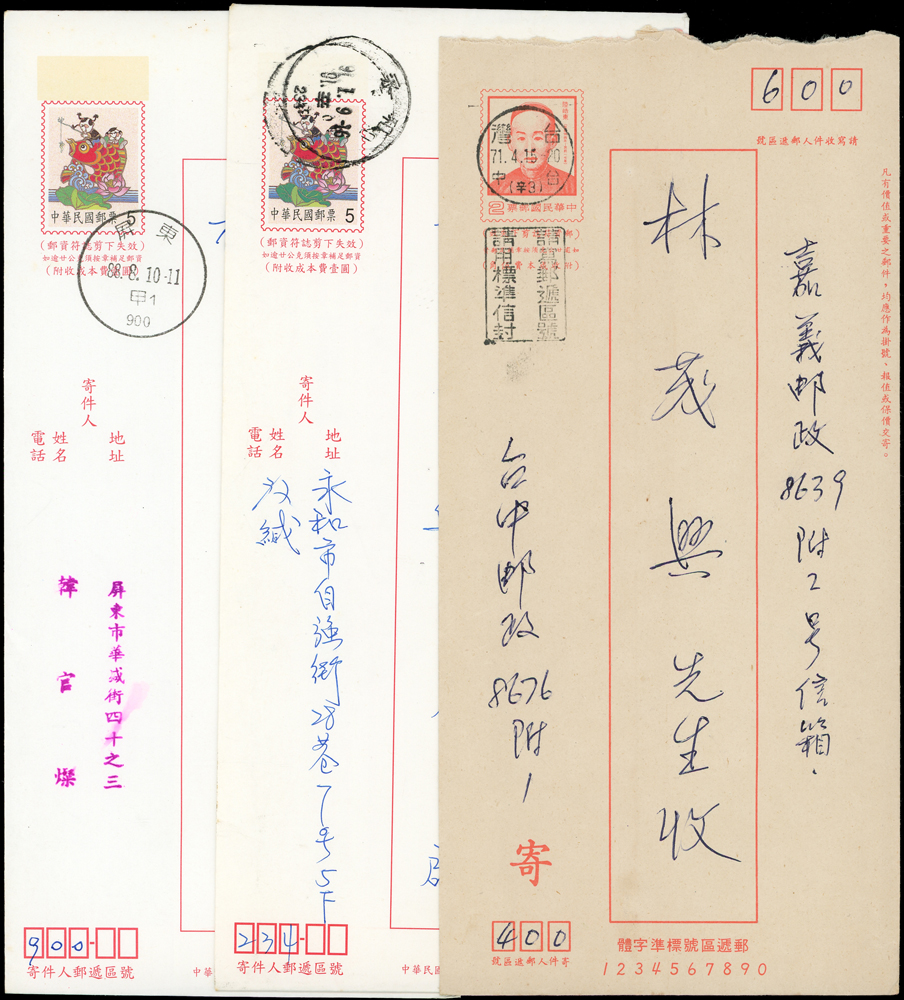 中華民國郵票 5
(郵資符誌剪下失效)
如逾廿公克須免章補足郵資
屏東
88.8.10-11
甲1
900
寄件人
地址
姓名
電話
屏東市華盛街四十之三
韓官燦
900
寄件人郵遞區號
中華
中華民國郵票 5
(郵資符誌剪下失效)
(附收成本費壹圓)
寄件人
地址
姓名
電話
永和市自強街28巷7号5下
234
寄件人郵遞區號
中華民
600
請寫收件人郵遞區號
凡有價值或重要之郵件，均應作為掛號、報值或保價交寄。
嘉義邮政8639附2号信箱.
林茂興先生收
中華民國郵票 2
台灣
71.4.15
台中
(辛3)
請寫郵遞區號
請用標準信封
台中邮政8676附1
寄
400
寄件人郵遞區號
郵遞區號標準字體
1234567890